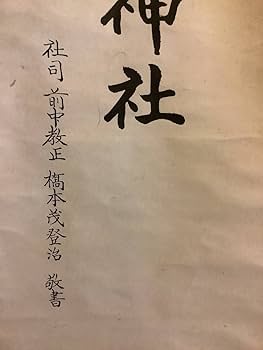 神社
社司 前中教正 橋本茂登治 敬書